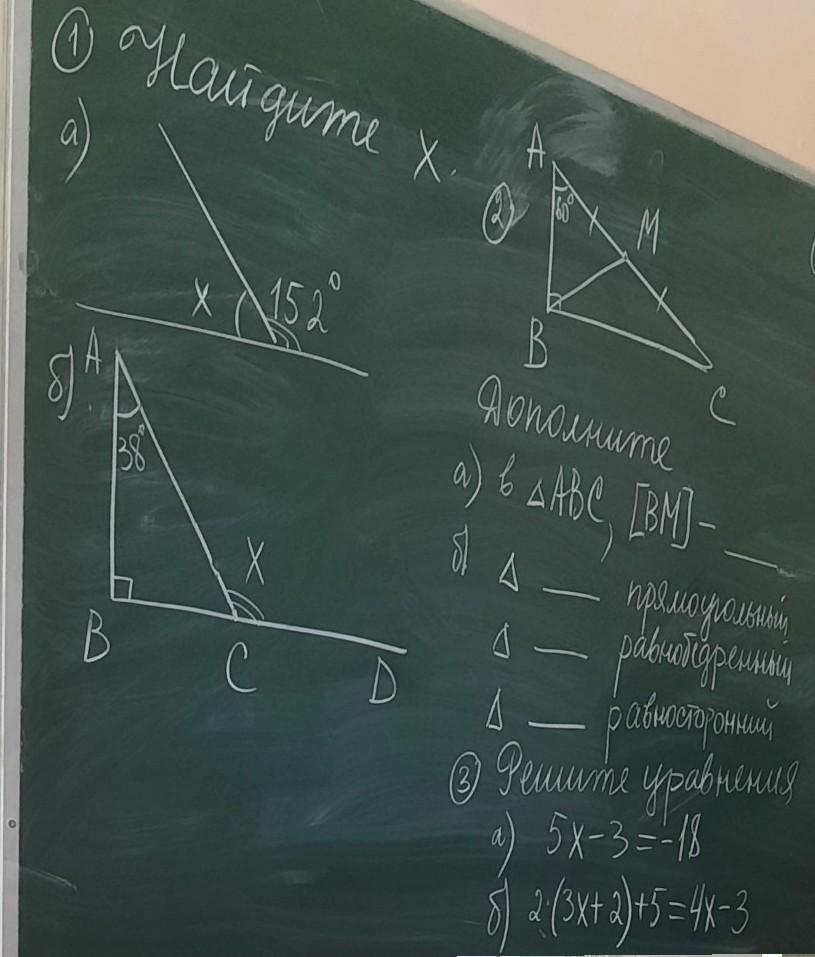 ① Найдите x.
а)
x 152°
б).
A
38°
x
B
C
D
②
A
60°
M
B
C
Дополните
а) в △ABC, [BM] – __
б) △ __ прямоугольный
△ __ равнобедренный
△ __ равносторонний
③ Решите уравнения
а) 5x-3=-18
б) 2·(3x+2)+5=4x-3